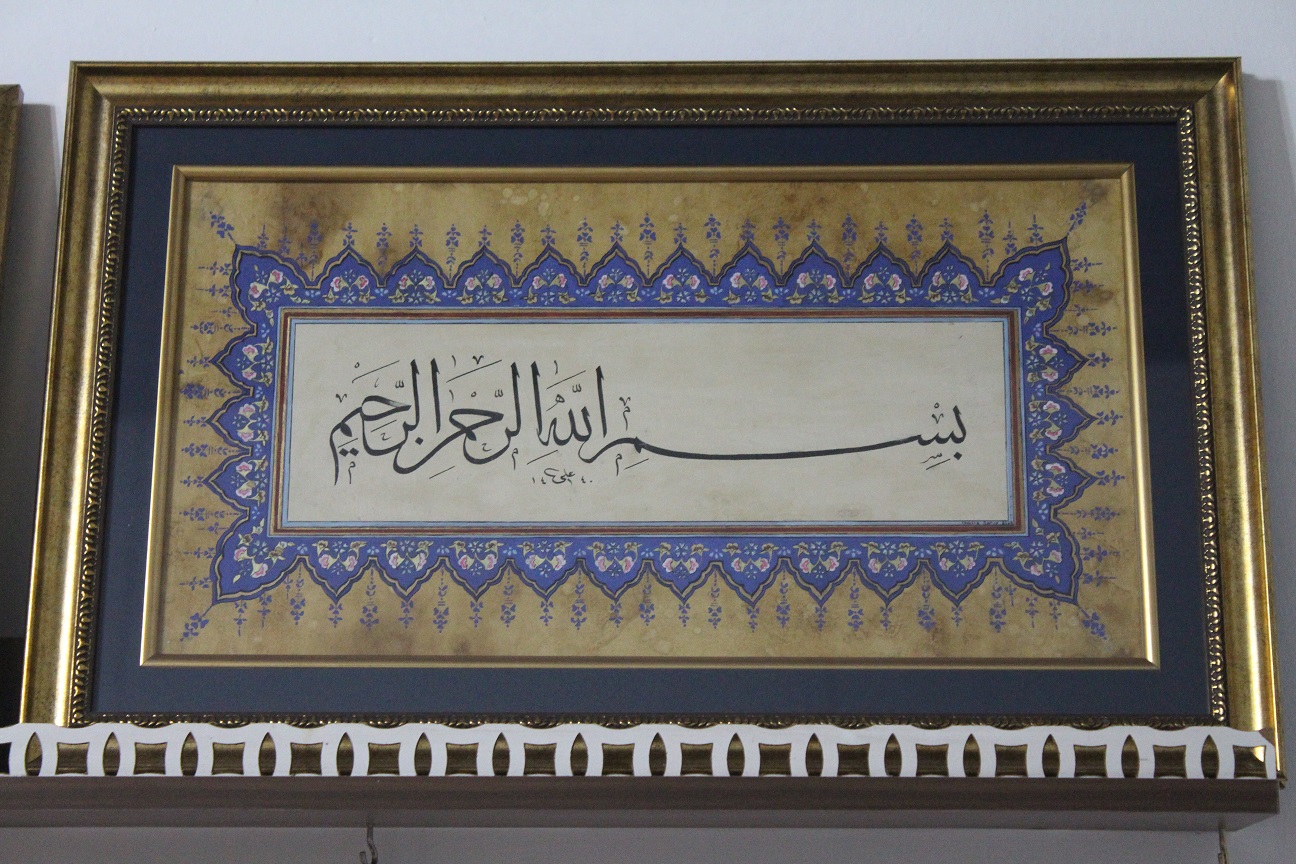 بِسْمِ اللّٰهِ الرَّحْمٰنِ الرَّحِيمِ
علي